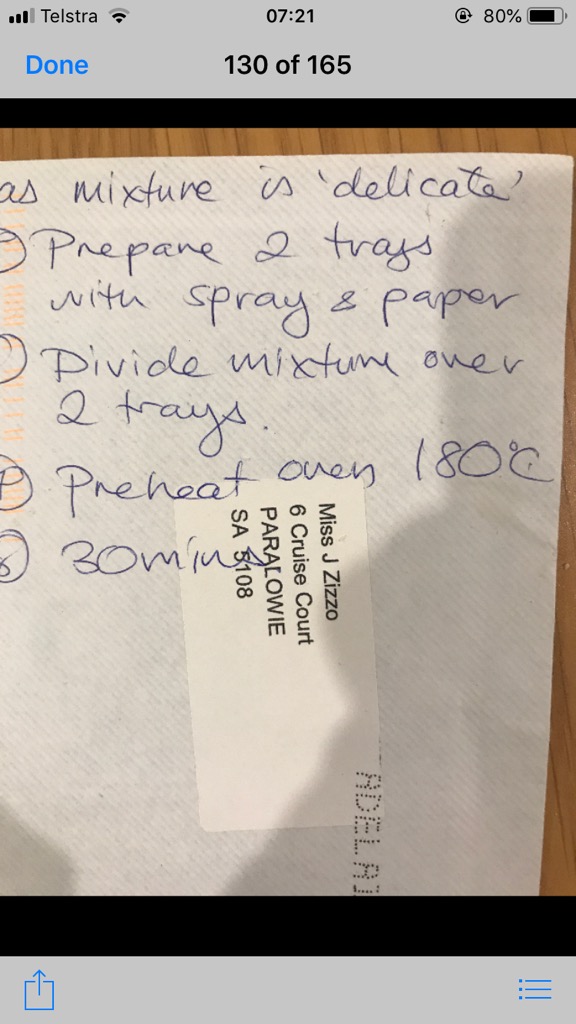 Telstra 07:21 80%
Done 130 of 165
as mixture is 'delicate'
Prepare 2 trays
with spray & paper
Divide mixture over
2 trays.
Preheat oven 180°C
30mins
Miss J Zizzo
6 Cruise Court
PARALOWIE
SA 5108
ADELAI